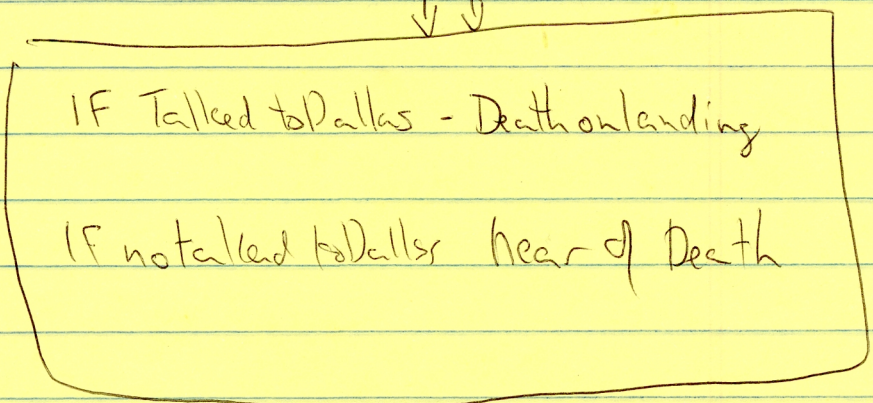 IF Talked to Dallas - Death on landing
IF not alked to Dallas hear of Death